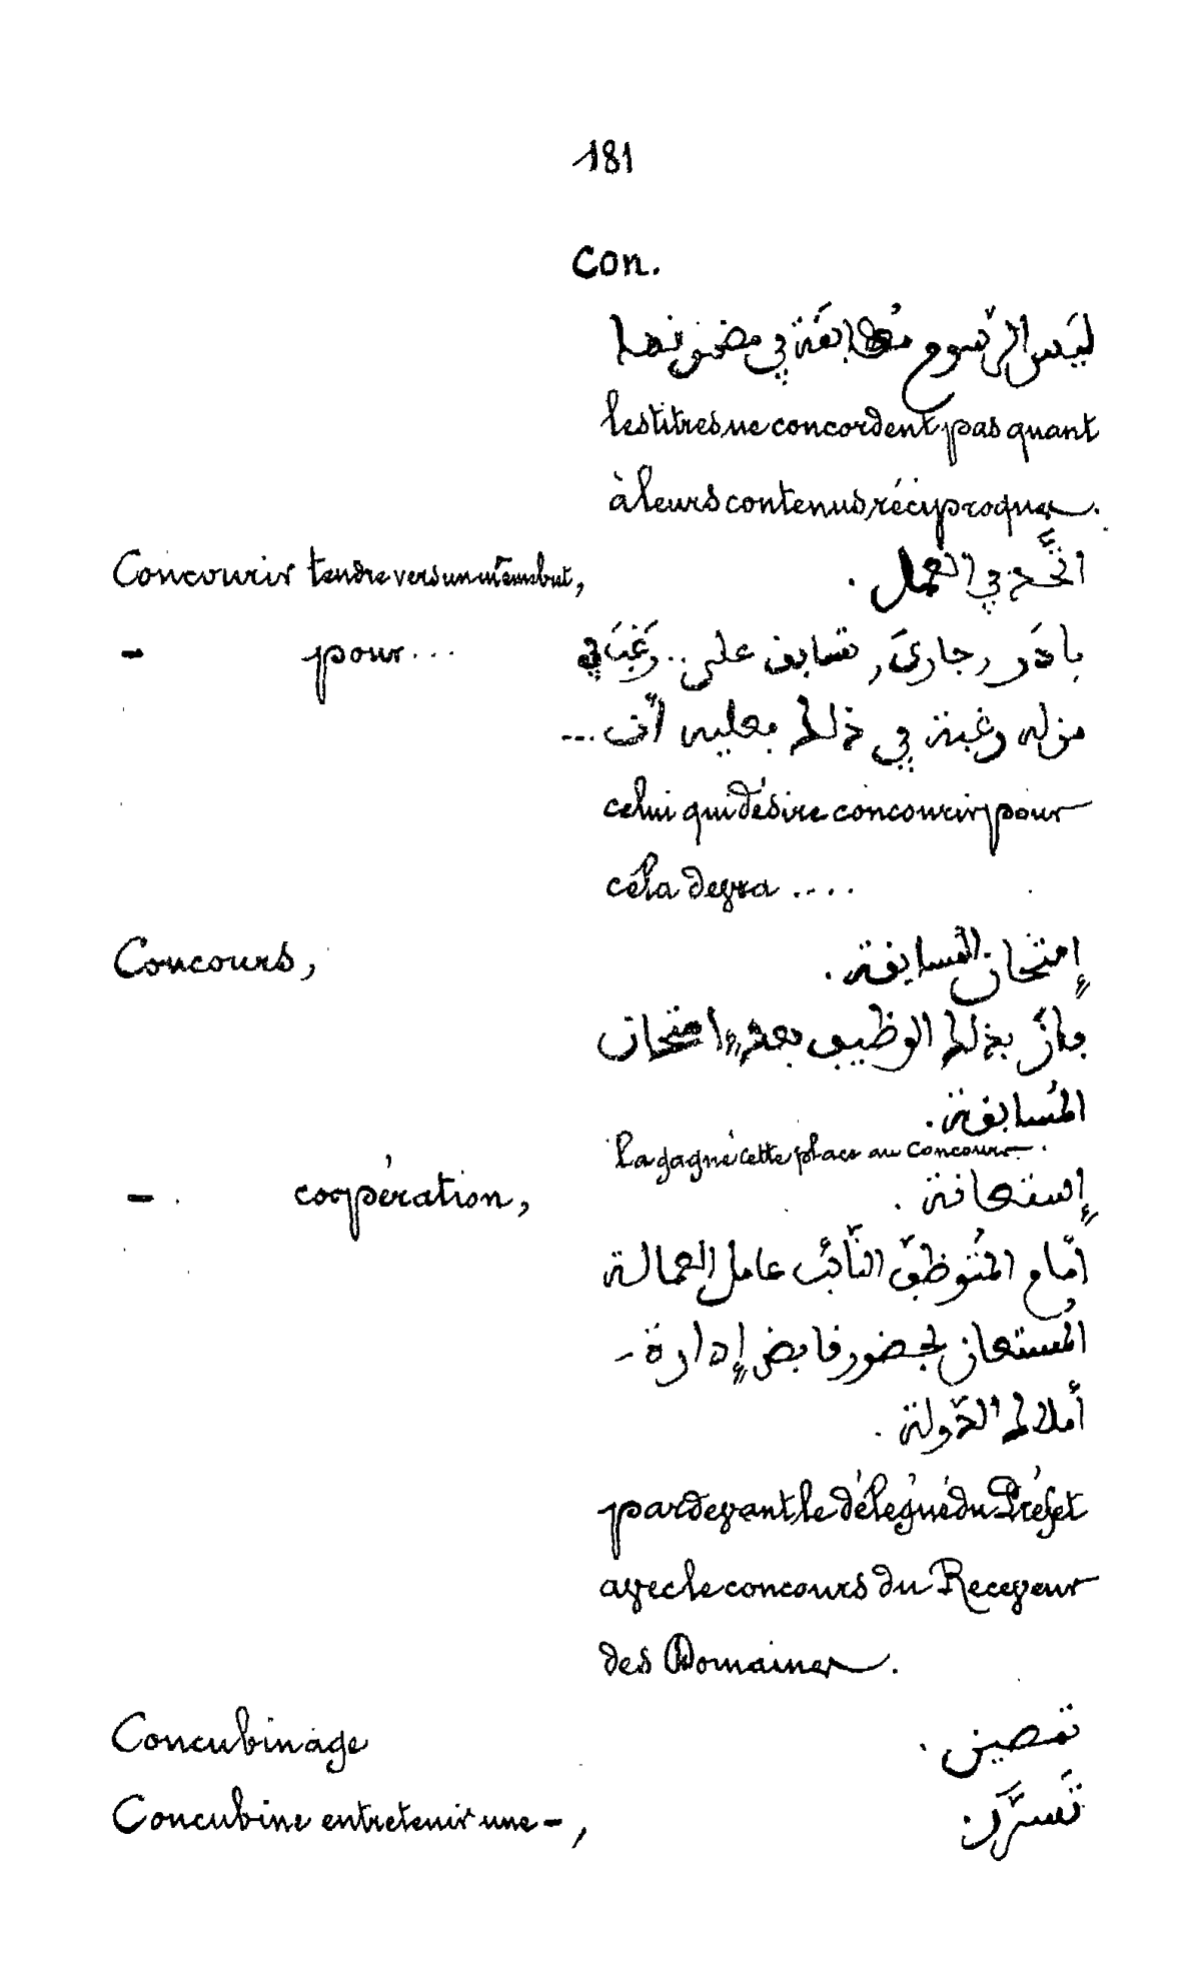 181
Con.
ليَس الرّسوم مُطابقَة في مضمونها
les titres ne concordent pas quant
à leurs contenus réciproques.
Concourir tendre vers un même but, اتَّحد في العمل.
- pour... بادَر, جارىَ, تسابق على.. رَغِبَ في
من له رغبة في ذلك فعليه أن ...
celui qui désire concourir pour
céla devra ....
Concours, إمتحان المسابقة.
فاز بذلك الوظيف بعد إمتحان
المُسابقة.
la gagné cette place au Concours.
- coopération, إستعانة.
امّام المُتوظّف النّائب عامل العمالة
المُستعان بحضور قابض إدارة -
أملاك الدّولة.
par devant le délégué du Préfet
avec le concours du Receveur
des Domaines.
Concubinage
Concubine entretenir une -, تَسَرَّر.